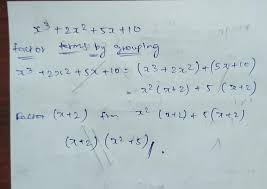 x³ + 2x² + 5x + 10
factor terms by grouping
x³ + 2x² + 5x + 10 = (x³ + 2x²) + (5x + 10)
= x² (x + 2) + 5 (x + 2)
factor (x + 2) from x² (x + 2) + 5 (x + 2)
(x + 2) (x² + 5) //.